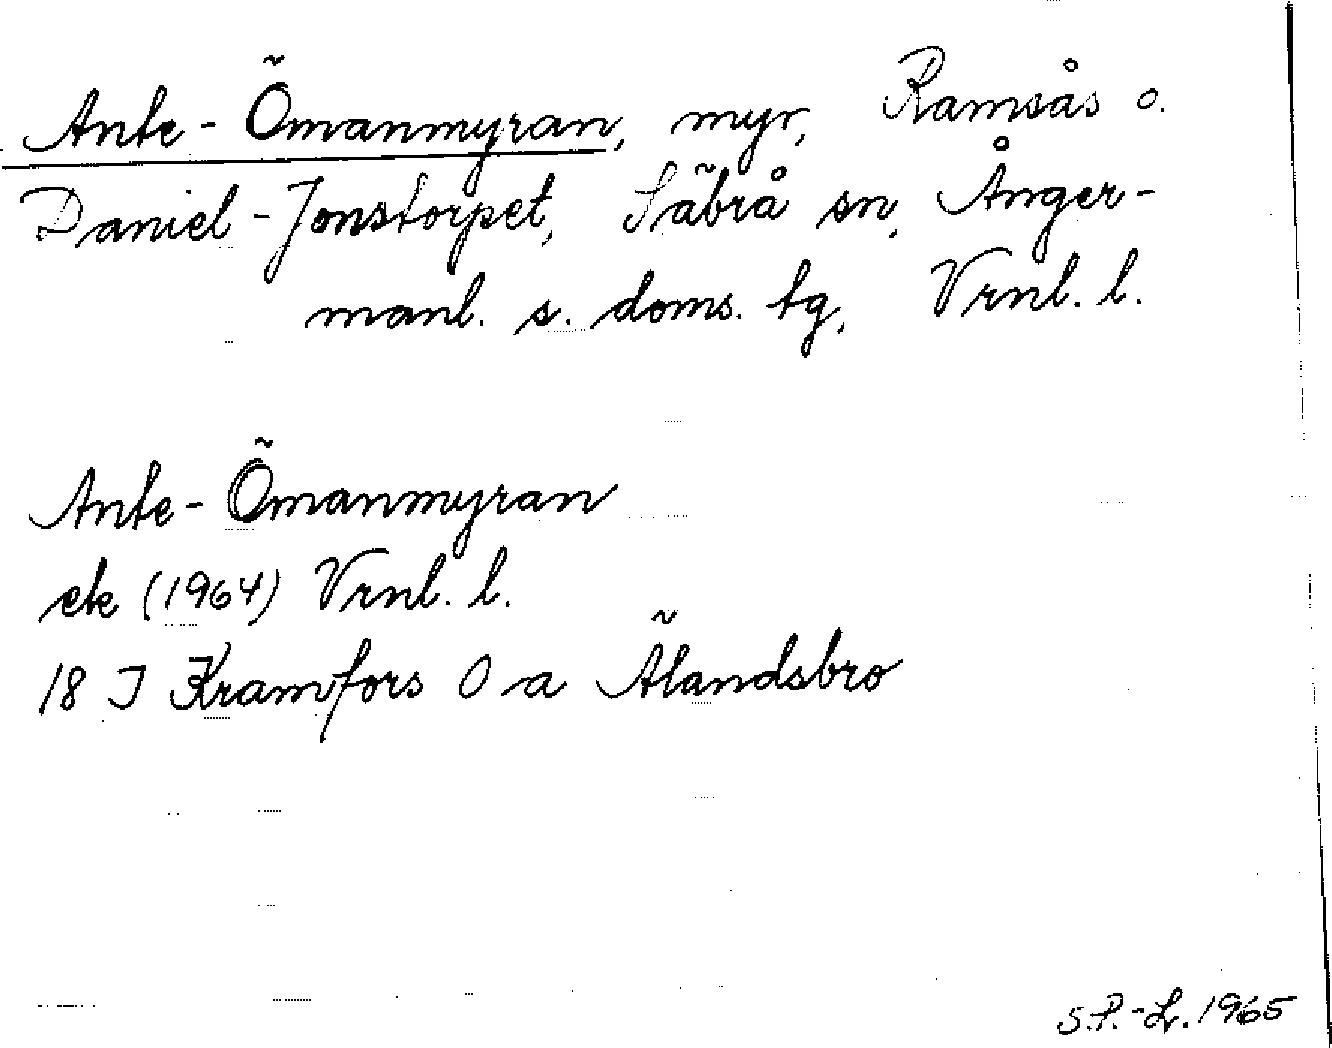 Ante-Ömanmyran, myr, Ramsås o.
Daniel-Jonstorpet, Säbrå sn, Ånger-
manl. s. doms. tg, Vrnl. l.
Ante-Ömanmyran
ek (1964) Vrnl. l.
18 I Kramfors O a Älandsbro
S.P.-L. 1965